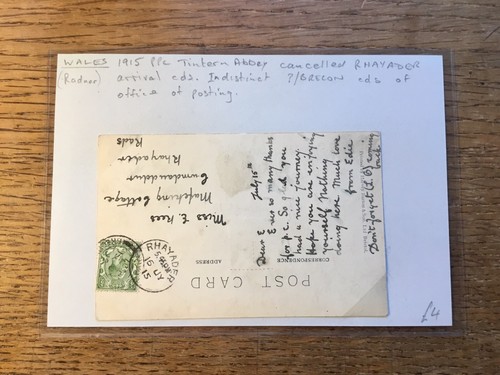 WALES 1915 PPC Tintern Abbey cancelled RHAYADER
(Radnor) arrival cds. Indistinct ?/BRECON cds of
office of posting.
POST CARD
CORRESPONDENCE
ADDRESS
July 15th
Dear E
Ever so many thanks
for p.c. So glad you
had a nice journey.
Hope you are enjoying
yourself Nothing
doing here Much love
from Edie
Don't forget (1.6) coming
back
Miss E. Rees
Mafeking Cottage
Cwmdauddwr
Rhayader
Rads
RHAYADER
16 JY
15
£4